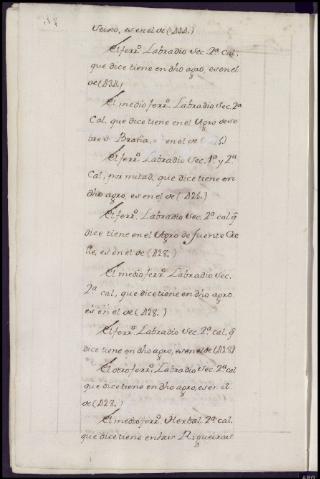 es en el de (N22.)
El ferr.º Labradio sec. 2ª Cal.
que dice tiene en dho agro, es en el
de (N22.)
El medio ferr.º Labradio sec. 2ª
Cal. que dice tiene en el Agro de so
bre Braña, en el de
El ferr.º Labradio sec. 1ª y 2ª
Cal, por mitad, que dice tiene en
dho agro, es en el de (N26.)
El ferr.º Labradio sec. 2ª cal. q̃
dice tiene en el Agro de fuente
es en el de (N28.)
El medio ferr.º Labradio sec.
2ª cal, que dice tiene en dho agro
es en el de (N28.)
El ferr.º Labradio sec. 2ª cal. q̃
dice tiene en dho agro, es en el de (N28)
El otro ferr.º Labradio sec. 2ª cal
que dice tiene en dho agro, es en el
de (N28.)
El medio ferr.º Herbal 2ª cal.
que dice tiene en das Riqueiras